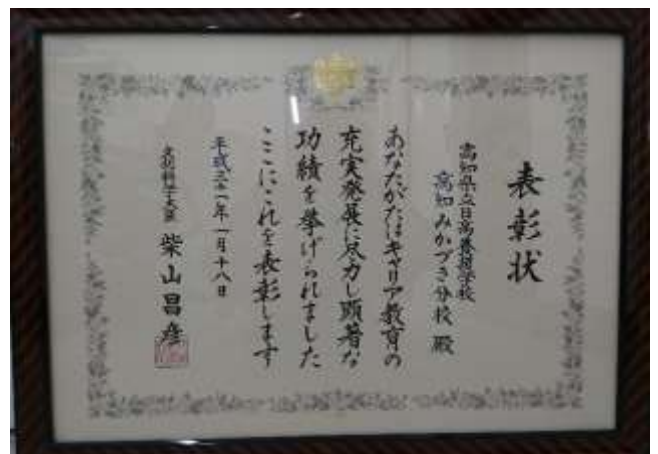 表彰状
高知県立日高養護学校
高知みかづき分校 殿
あなたがたはキャリア教育の
充実発展に尽力し顕著な
功績を挙げられました
ここにこれを表彰します
平成三十一年一月十八日
文部科学大臣 柴山昌彦